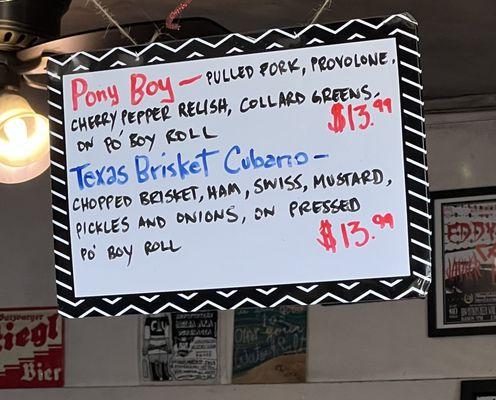 Pony Boy – PULLED PORK, PROVOLONE,
CHERRY PEPPER RELISH, COLLARD GREENS,
ON PO' BOY ROLL
$13.99
Texas Brisket Cubano –
CHOPPED BRISKET, HAM, SWISS, MUSTARD,
PICKLES AND ONIONS, ON PRESSED
PO' BOY ROLL
$13.99
EDDY
Bier